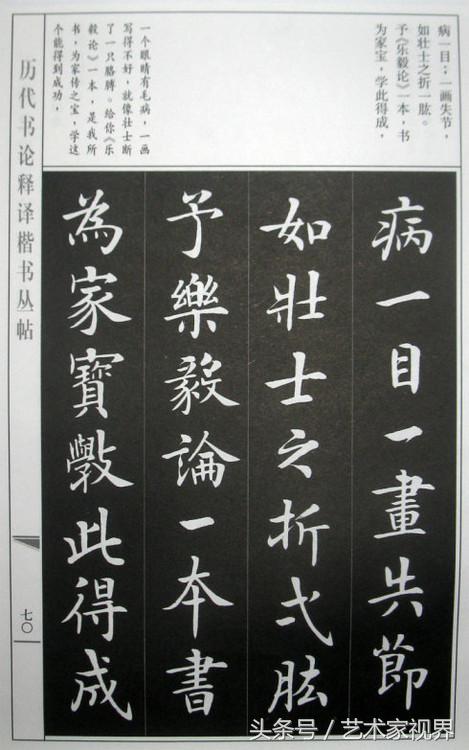 病一目；一画失节，
如壮士之折一肱。
予《乐毅论》一本，书
为家宝，学此得成，
一个眼睛有毛病，一画
写得不好，就像壮士断
了一只胳膊。给你《乐
毅论》一本，是我所
书，为家传之宝，学这
个能得到成功，
病一目一畫失節
如壯士之折弌肱
予樂毅論一本書
為家寶斆此得成
历代书论释译楷书丛帖
七〇
头条号／艺术家视界